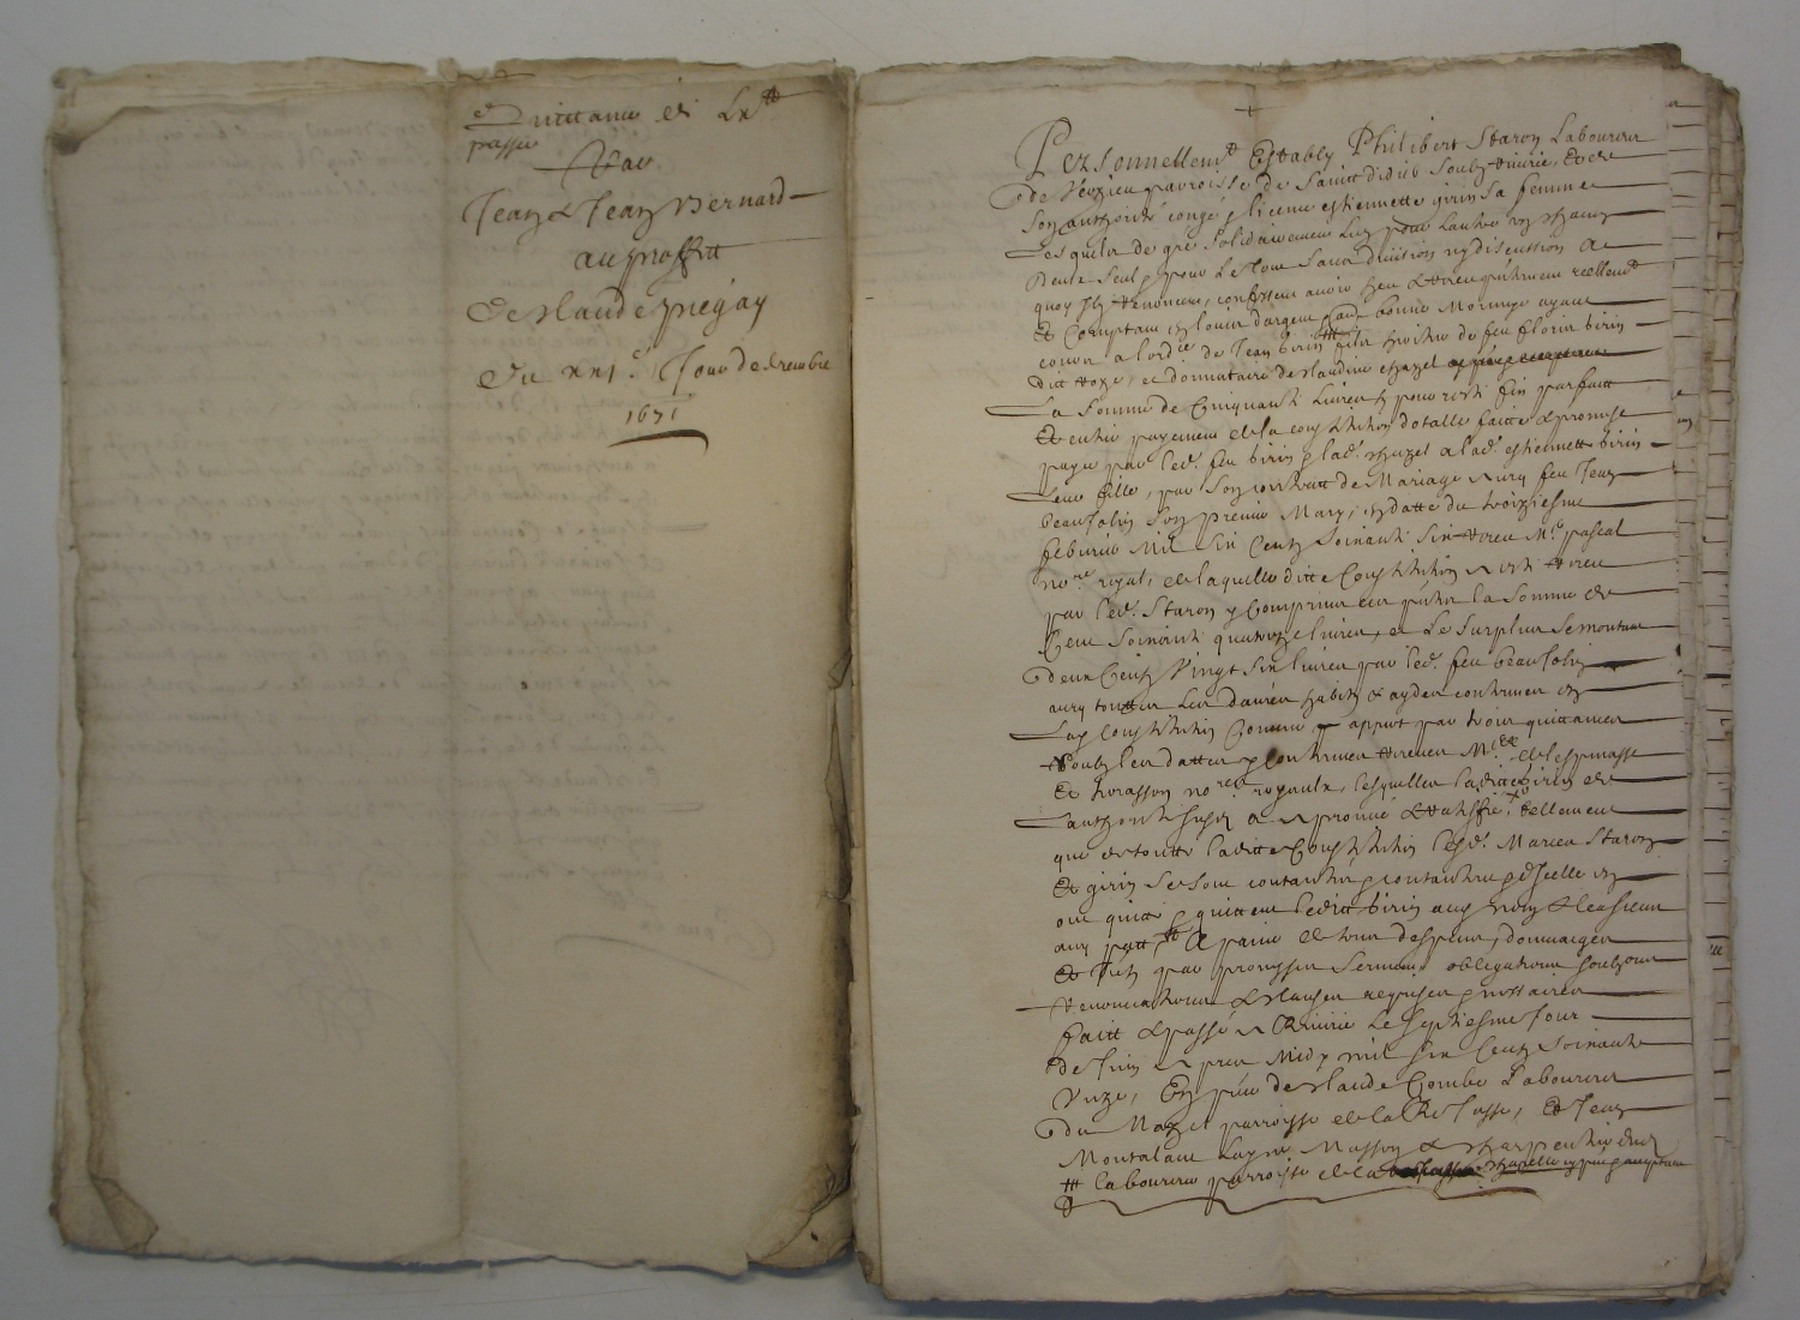 Quittance de L tt
passée
Par
Jean & Jean Bernard
au proffitt
de Claude pregay
Du xxi.e Jour decembre
1671
Personnellemt Estably Philibert Staron Laboureur
de Verzieu parroisse de Sainct didier soubz Riuirie, et de
son authorité congé & licence estiennette girin sa femme
Lesquelz de gré solidairement Lun pour Lautre un chacun
Deulx seul & pour Le tout sans diuision ny discussion A
quoy ilz renoncent, confessent auoir heu & receu reellemt
Et Comptant en louis dargent & aude bonne Monnoye ayant
cours a lord.ce de Jean Girin filz heritier de feu florin Girin
dict roze, et donnataire de claudine chazel
La somme de Cinquante Liures & pour reste fin parfaict
Et entier payement de la constitution dotalle faitte & promise
payer par led. feu Girin & lad. chazel a lad. estiennette Girin
Leur fille, par son contract de Mariage auec feu Jean
beaujolin son premier Mary, en datte du troiziesme
feburier Mil six Centz soixante six receu M.e pascal
no.re royal, de laquelle ditte Constitution a esté receu
par led. Staron y Compris la somme de
Cent soixante quatorze liures, et Le surplus se montant
deux Centz Vingt six liures par led. feu beaujolin
auec touttes Les danrées habitz & aydes contenues en
Lad. Constitution Comme appert par trois quittances
soubz leurs dattes contenues receues M.es delespinasse
Et thorasson no.res royaulx, lesquelles laditte Girin de
lauthorité susd. a approuué & rattiffié, tellement
que de toutte laditte Constitution lesd. Mariez Staron
Et girin se sont contantés & contantent & dicelle en
ont quitté & quittent ledict Girin aud. nom & les siens
auec pact A paine de tous despens, dommages
Et Intz par promesses serment obligations soubzons
renonciations & clauses requises & necessaires
faict & passé a Riuirie Le septiesme Jour
de Juin apres Midy mil six Centz soixante
Vnze, En pñce de claude Combe Laboureur
du Mazel parroisse de la Rajasse, Et Jean
Montaland Layné Masson & charpentier
laboureur parroisse de la